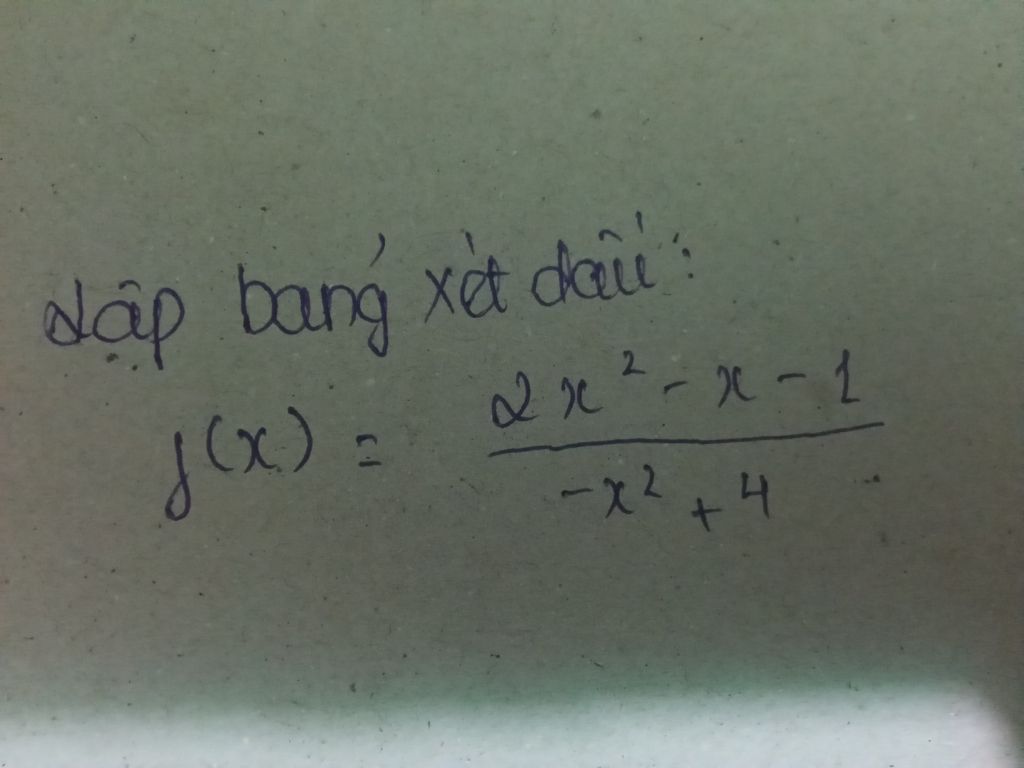 Lập bảng xét dấu:
f(x) = \frac{2x^2 - x - 1}{-x^2 + 4}